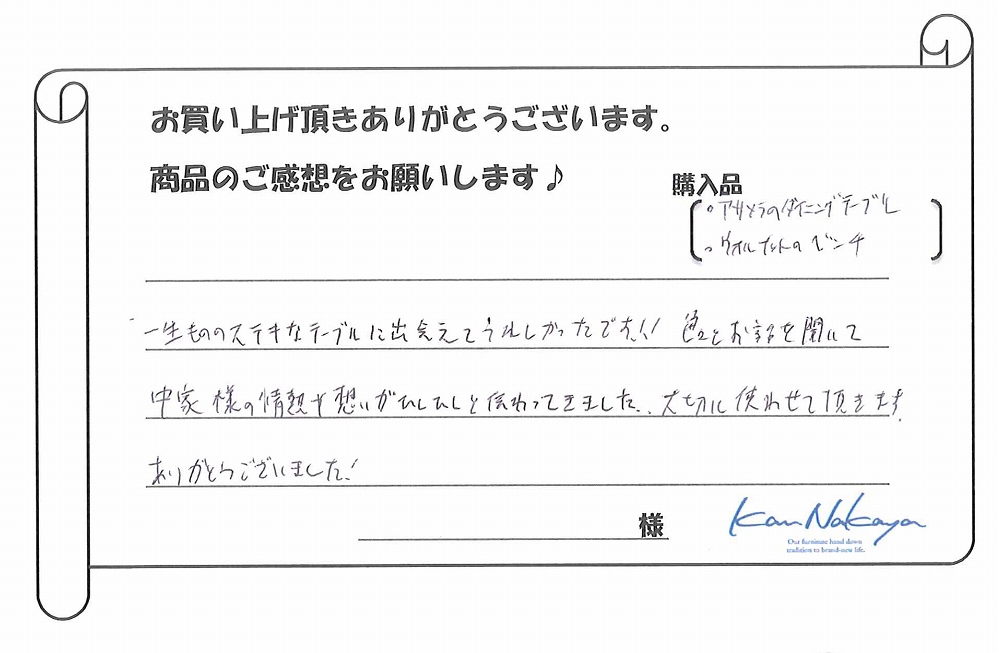 お買い上げ頂きありがとうございます。
商品のご感想をお願いします♪
購入品
・アサメラのダイニングテーブル
・ウォルナットのベンチ
一生もののステキなテーブルに出会えてうれしかったです!! 色々とお話を聞いて
中家様の情熱や想いがひしひしと伝わってきました.. 大切に使わせて頂きます.
ありがとうございました!
様
Kan Nakaya
Our furniture hand down
tradition to brand-new life.